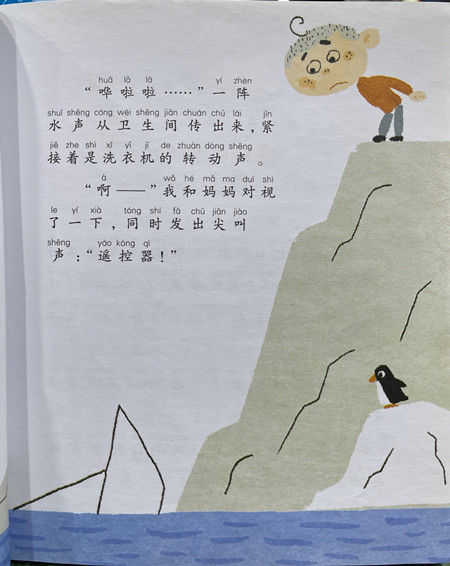 huā lā lā yí zhèn
“哗啦啦……”一阵
shuǐ shēng cóng wèi shēng jiān chuán chū lái jǐn
水声从卫生间传出来，紧
jiē zhe shì xǐ yī jī de zhuàn dòng shēng
接着是洗衣机的转动声。
à wǒ hé mā ma duì shì
“啊——”我和妈妈对视
le yí xià tóng shí fā chū jiān jiào
了一下，同时发出尖叫
shēng yáo kòng qì
声：“遥控器！”